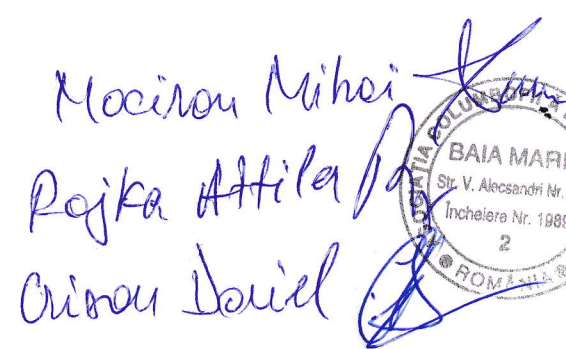 Mociran Mihai
Rajka Attila
Crisan Daniel
COLUMBOFILĂ
BAIA MARE
Str. V. Alecsandri Nr.
Încheiere Nr. 1989
2
ROMÂNIA